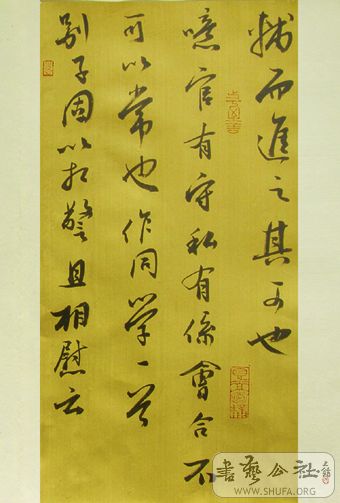 輔而進之其可也
噫官有守私有係會合不
可以常也作同學一首
別子固以相警且相慰云
書藝公社
WWW.SHUFA.ORG